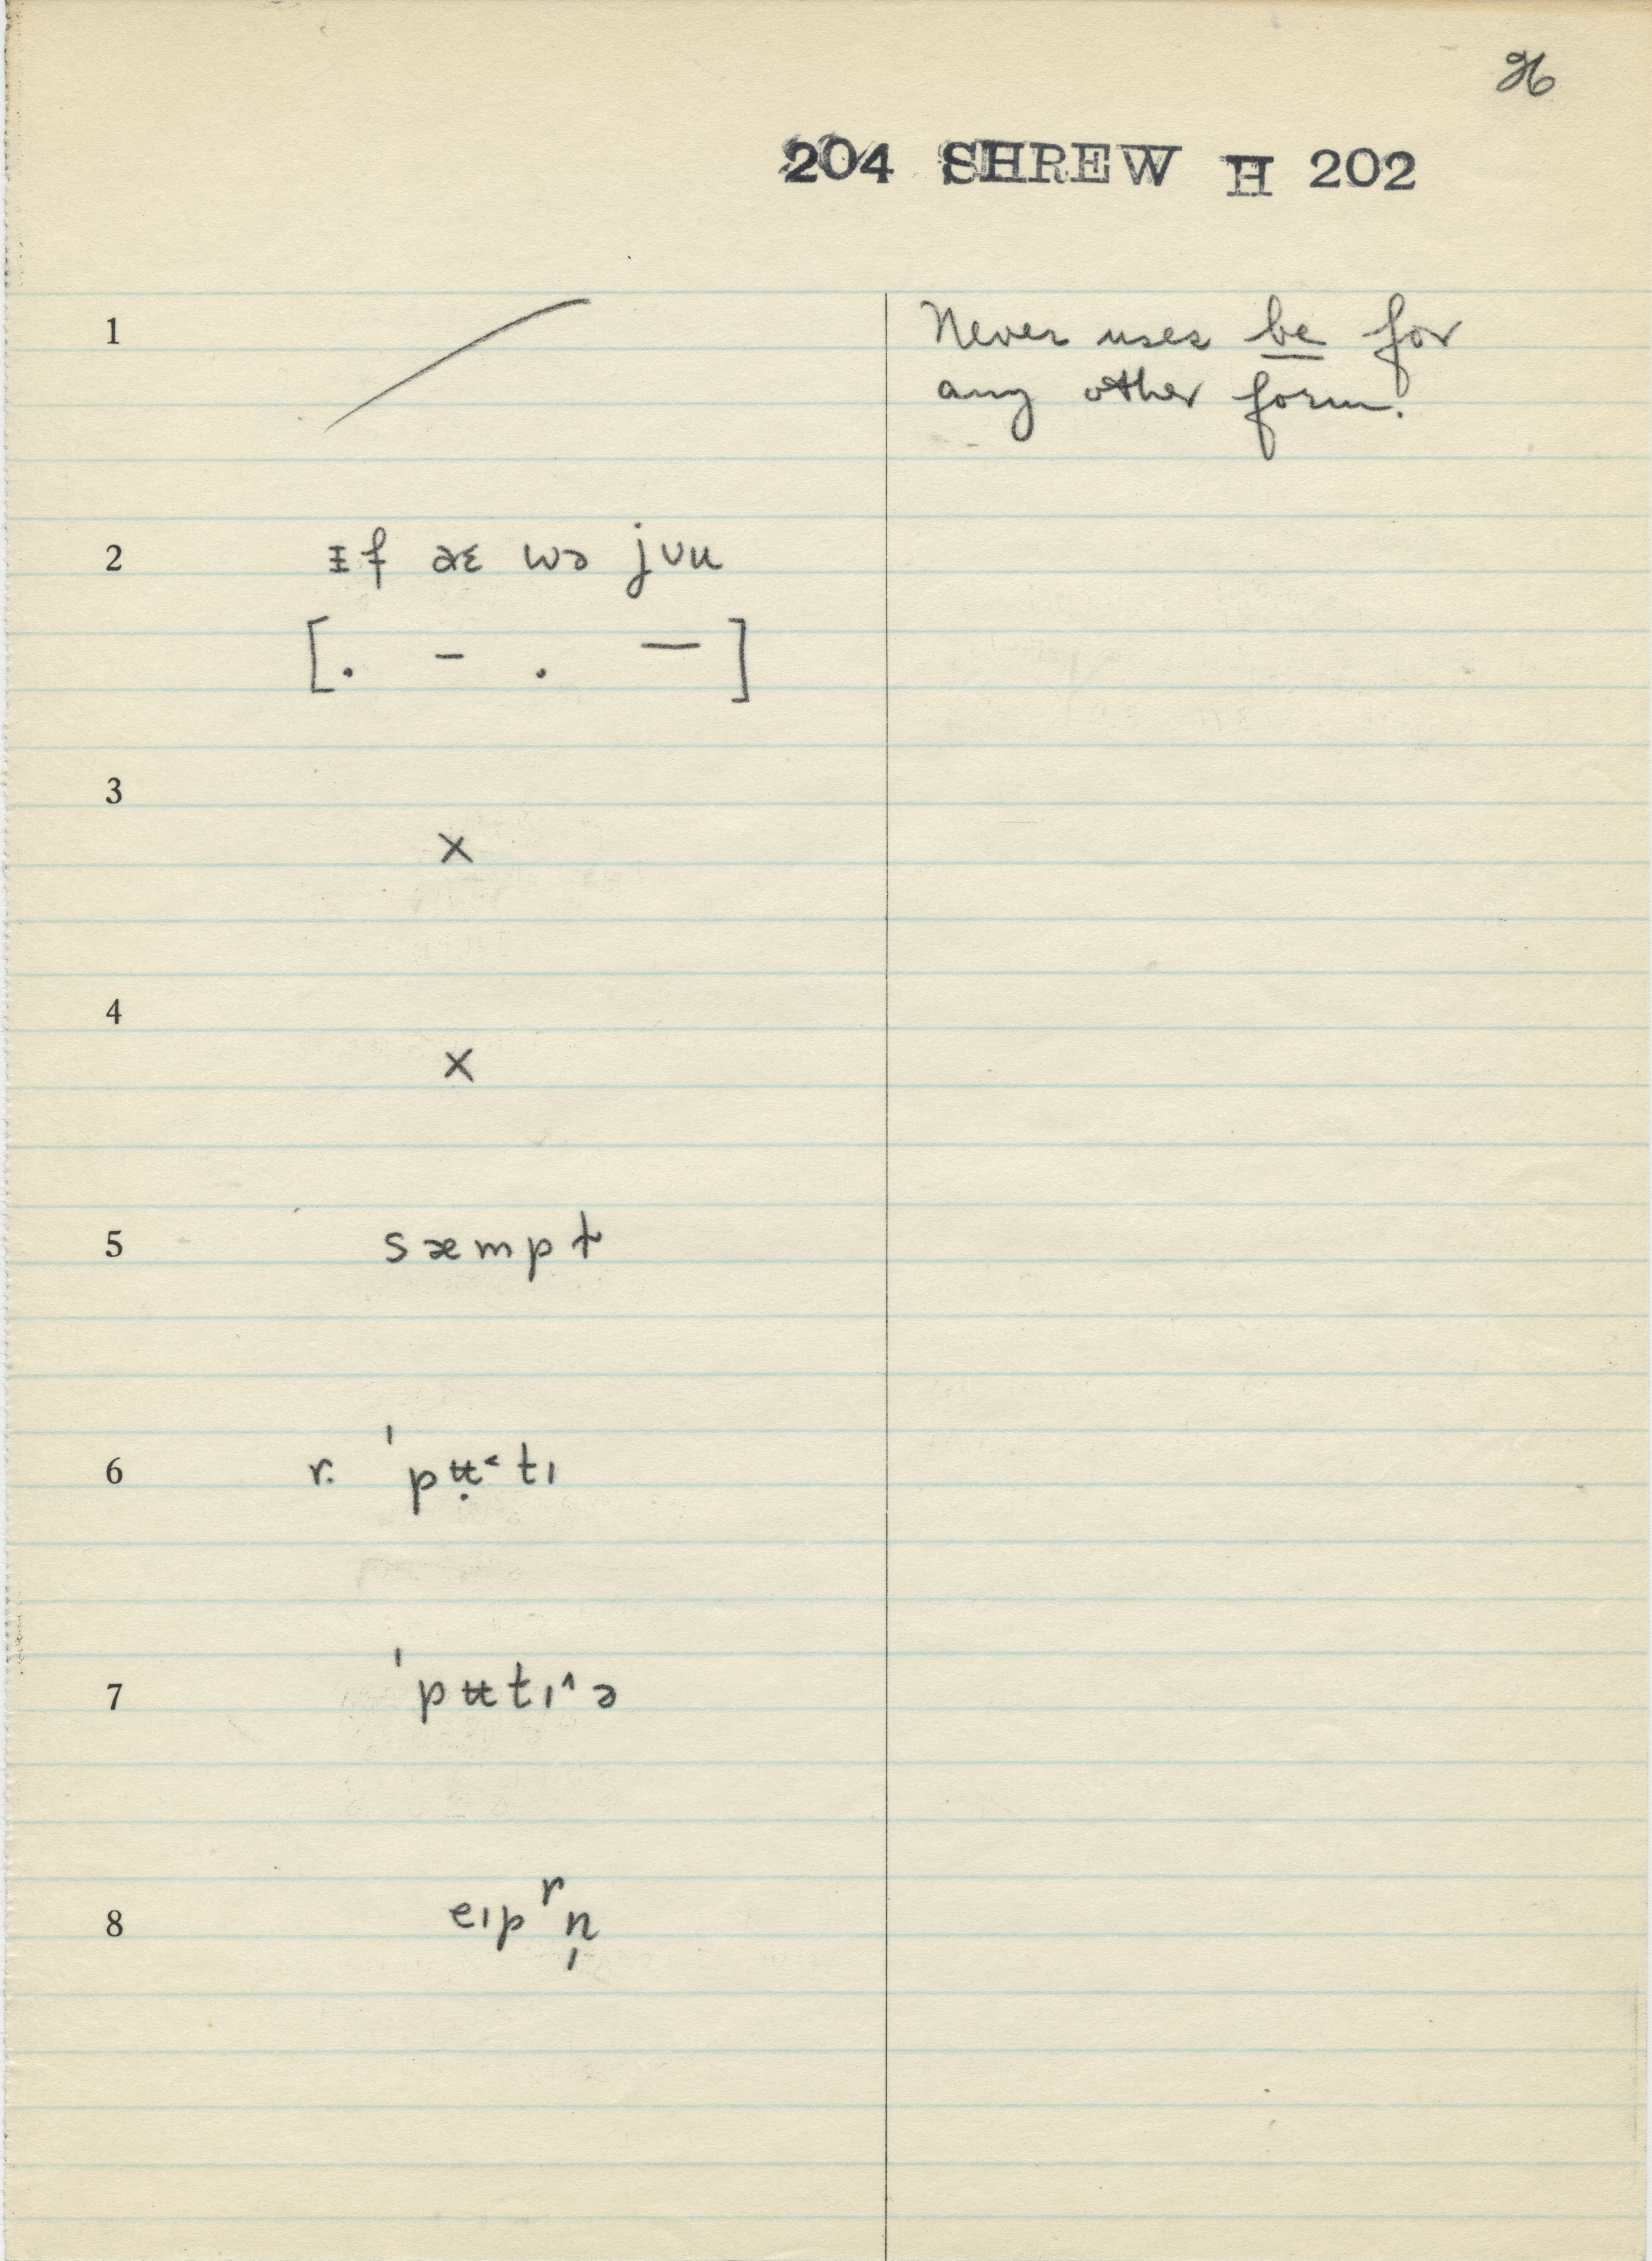 26
204 SHREW H 202
1 Never uses be for
any other form.
2 ɪf aɛ wə jʊu
[. – . —]
3
×
4
×
5 sæmpt
6 r. ˈpʉ̣˂tɪ
7 ˈpʉtɪ^ə
8 eɪpʳn̩